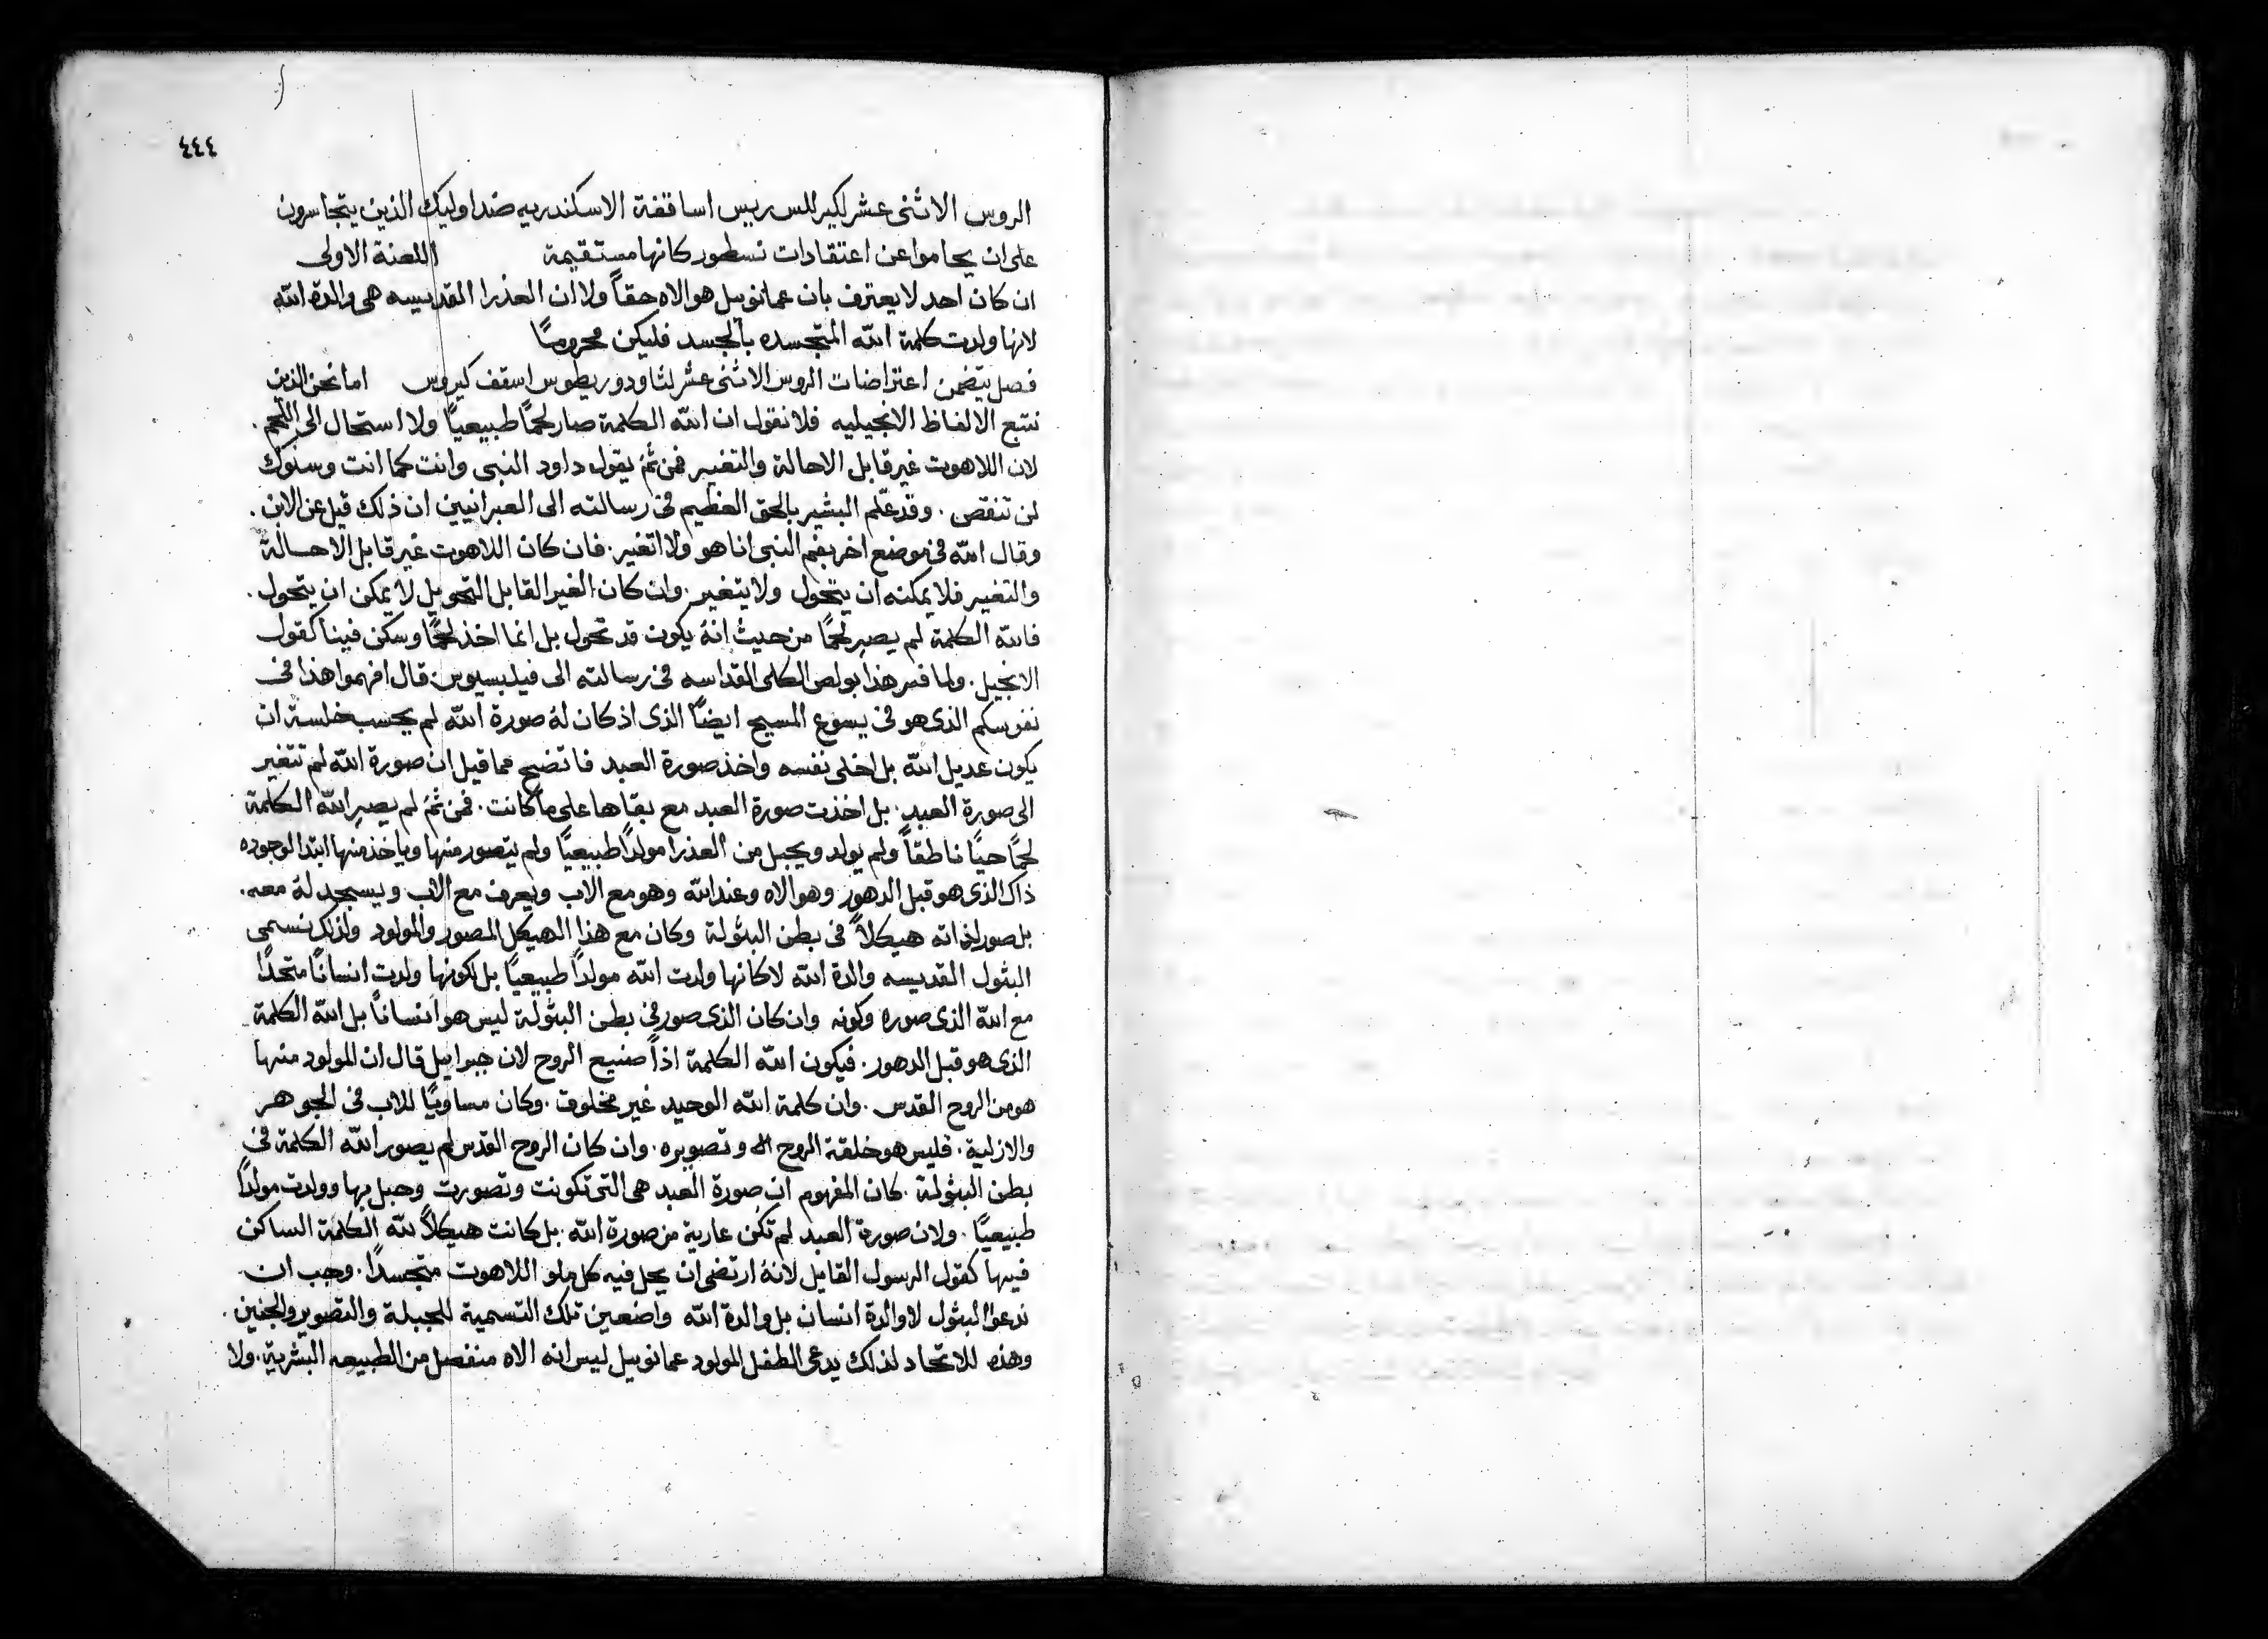 ٤٤٤
الروس الاثنى عشر لكيرللس رييس اساقفة الاسكندريه ضد اوليك الذين يتجاسرون
على ان يحاموا عن اعتقادات نسطور كانها مستقيمة اللعنة الاولى
ان كان احد لا يعترف بان عمانوييل هو الاه حقاً ولا ان العذرا القديسه هى والدة الله
لانها ولدت كلمة الله المتجسده بالجسد فليكن محروماً
فصل يتضمن اعتراضات الروس الاثنى عشر لثاودوريطوس اسقف كيروس اما نحن الذين
نتبع الالفاظ الانجيليه فلا نقول ان الله الكلمة صار لحمًا طبيعيًا ولا استحال الى اللحم .
لان اللاهوت غير قابل الاحالة والتغيير فمن ثمَ يقول داود النبى وانت كما انت وسنوك
لن تنقص . وقد علّم البشير بالحق العظيم فى رسالته الى العبرانيين ان ذلك قيل عن الابن .
وقال الله فى موضع اخر بفم النبى انا هو ولا اتغير . فان كان اللاهوت غير قابل الاحالة
والتغيير فلا يمكنه ان يتحول ولا يتغير . وان كان الغير القابل التحويل لا يمكن ان يتحول .
فالله الكلمة لم يصير لحمًا من حيث انهُ يكون قد تحول بل انما اخذ لحمًا وسكن فينا كقول
الانجيل . ولما فسر هذا بولص الكلى القداسه فى رسالته الى فيلبسيوس قال افهموا هذا فى
نفوسكم الذى هو فى يسوع المسيح ايضًا الذى اذ كان لهُ صورة الله لم يحسب خلسة ان
يكون عديل الله بل اخلى نفسه واخذ صورة العبد فاتضح مما قيل ان صورة الله لم تتغير
الى صورة العبد . بل اخذت صورة العبد مع بقاها على ما كانت . فمن ثمَ لم يصير الله الكلمة
لحمًا حيًا ناطقاً ولم يولد ويحبل من العذرا مولدًا طبيعيًا ولم يتصور منها وياخذ منها ابتدا لوجوده
ذاك الذى هو قبل الدهور وهو الاه وعند الله وهو مع الاب ويعرف مع الاب ويسجد لهُ معه .
بل صور لذاته هيكلاً فى بطن البثولة وكان مع هذا الهيكل المصور والمولود ولذلك نسمى
البثول القديسه والدة الله لا كانها ولدت الله مولداً طبيعيًا بل لكونها ولدت انسانًا متحدًا
مع الله الذى صوره وكونه وان كان الذى صور فى بطن البثولة ليس هو انساناً بل الله الكلمة
الذى هو قبل الدهور . فيكون الله الكلمة اذاً صنيع الروح لان جبراييل قال ان المولود منها
هو من الروح القدس . وان كلمة الله الوحيد غير مخلوق . وكان مساويًا للاب فى الجوهر
والازلية . فليس هو خلقة الروح وتصويره . وان كان الروح القدس لم يصور الله الكلمة فى
بطن البثولة . كان المفهوم ان صورة العبد هى التى تكونت وتصورت وحبل بها وولدت مولداً
طبيعيًا . ولان صورة العبد لم تكن عارية من صورة الله . بل كانت هيكلاً لله الكلمة الساكن
فيها كقول الرسول القايل لانهُ ارتضى ان يحل فيه كل ملو اللاهوت متجسدًا . وجب ان
ندعو البثول لا والدة انسان بل والدة الله واضعين تلك التسمية للجبلة والتصوير والجنين .
وهذه للاتحاد لذلك يدعى الطفل المولود عمانوييل ليس انه الاه منفصل من الطبيعه البشرية . ولا